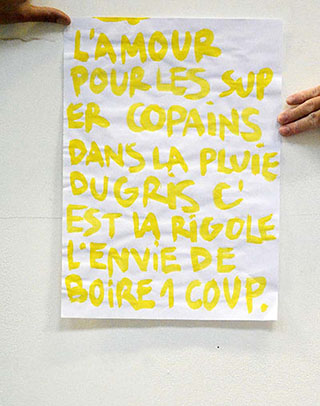 L'AMOUR
POUR LES SUP
ER COPAINS
DANS LA PLUIE
DU GRIS C'
EST LA RIGOLE
L'ENVIE DE
BOIRE 1 COUP.